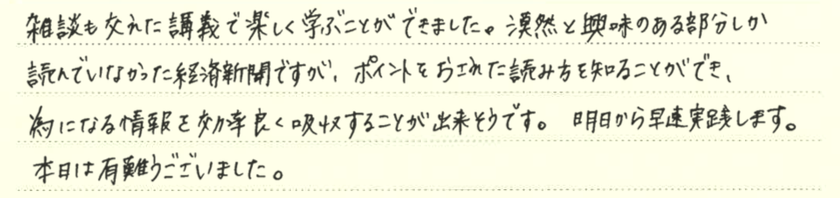 雑談も交えた講義で楽しく学ぶことができました。漠然と興味のある部分しか
読んでいなかった経済新聞ですが、ポイントをおさえた読み方を知ることができ、
為になる情報を効率良く吸収することが出来そうです。 明日から早速実践します。
本日は有難うございました。